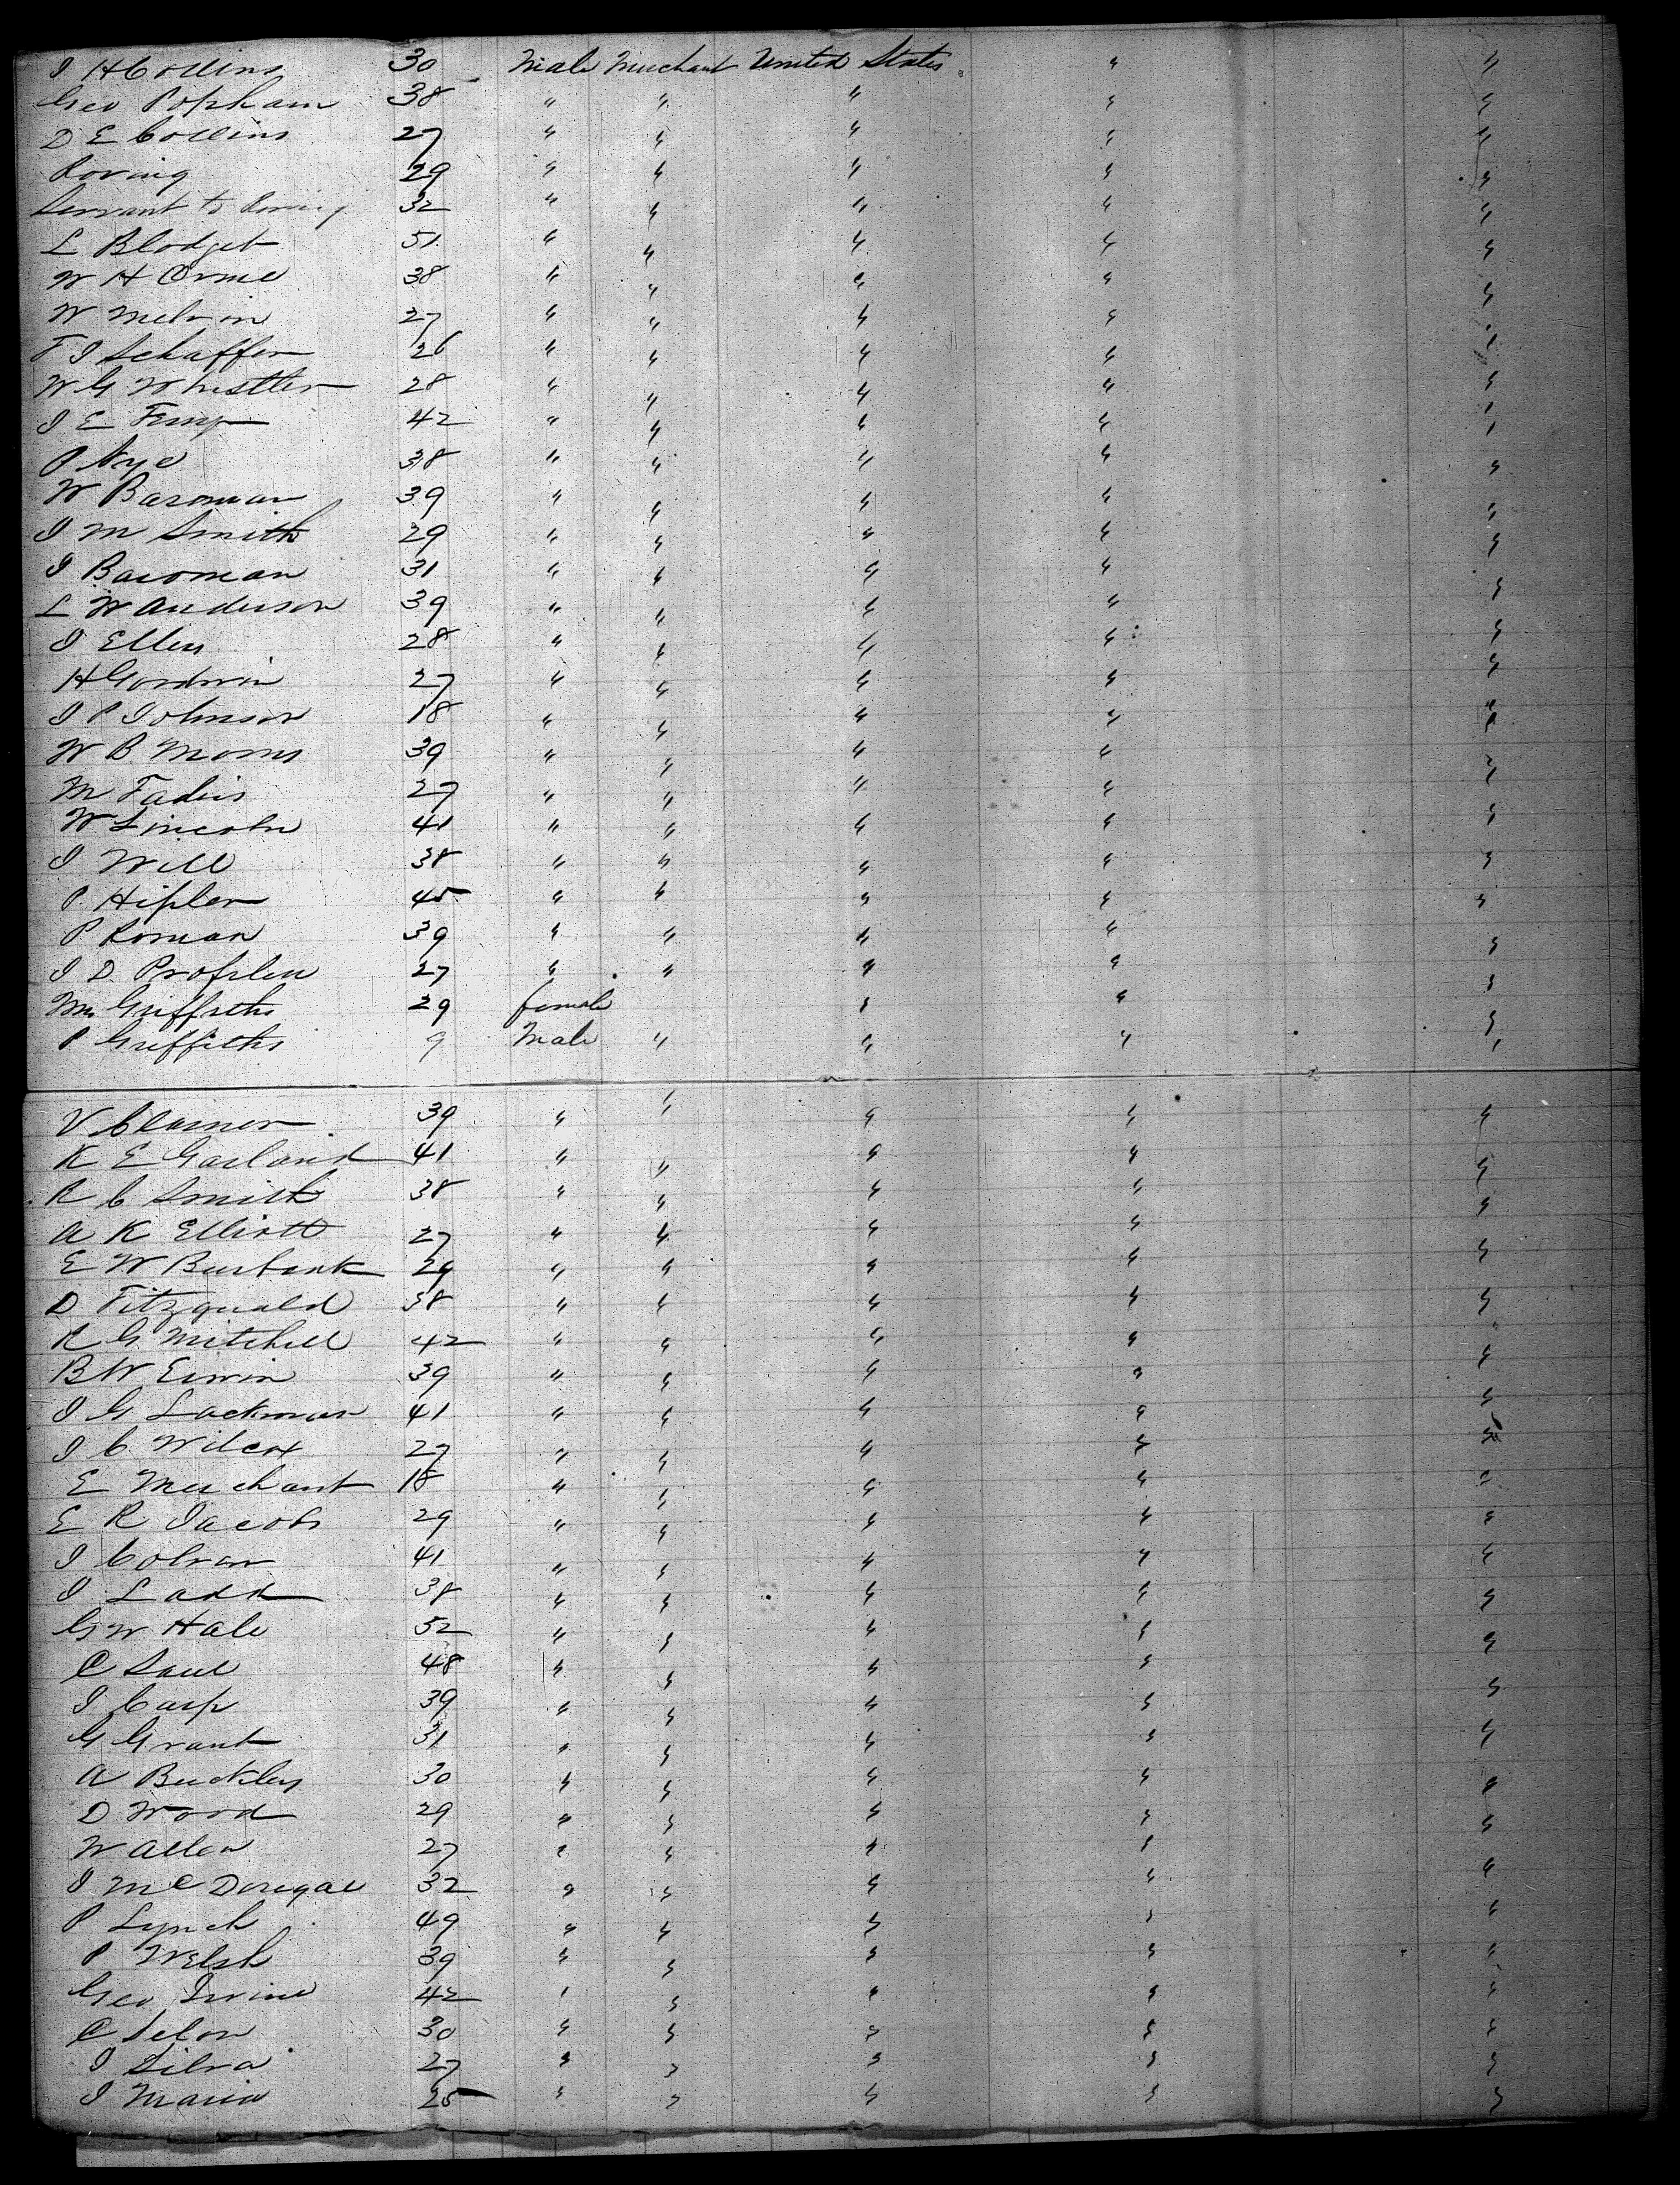 J H Collins 30 Male Merchant United States " "
Geo Popham 38 " " " " "
D E Collins 27 " " " " "
Loring 29 " " " " "
Servant to Loring 32 " " " " "
L Blodget 51 " " " " "
W H Orme 38 " " " " "
W Melvin 27 " " " " "
F J Schaffer 26 " " " " "
W G Whistler 28 " " " " "
J E 42 " " " " "
P Nye 38 " " " " "
W Bazoman 39 " " " " "
J M Smith 29 " " " " "
J Bazoman 31 " " " " "
L W Anderson 39 " " " " "
J Ellen 28 " " " " "
H Gordwin 27 " " " " "
J P Johnson 18 " " " " "
W B. Morris 39 " " " " "
M Fadin 27 " " " " "
W Lincoln 41 " " " " "
J Will 38 " " " " "
P. Hipler 45 " " " " "
P Roman 39 " " " " "
J D. 27 " " " " "
Mrs Griffiths 29 female " " "
P Griffiths 9 Male " " " "
V 39 " " " " "
K E Garland 41 " " " " "
R C Smith 38 " " " " "
A K Elliott 27 " " " " "
E W Burbank 29 " " " " "
D Fitzguald 38 " " " " "
R G Mitchell 42 " " " " "
B W Erwin 39 " " " " "
J G Lackman 41 " " " " "
J C Wilcox 27 " " " " "
E Merchant 18 " " " " "
E R Jacobs 29 " " " " "
J Colvan 41 " " " " "
J Ladd 38 " " " " "
G W Hale 52 " " " " "
C Saul 48 " " " " "
J Carp 39 " " " " "
G Grant 31 " " " " "
A Buckley 30 " " " " "
D Wood 29 " " " " "
W Allen 27 " " " " "
J McDougal 32 " " " " "
P Lynch 49 " " " " "
P Welsh 39 " " " " "
Geo Irvine 42 " " " " "
C Selon 30 " " " " "
J Silva 27 " " " " "
J Maria 25 " " " " "